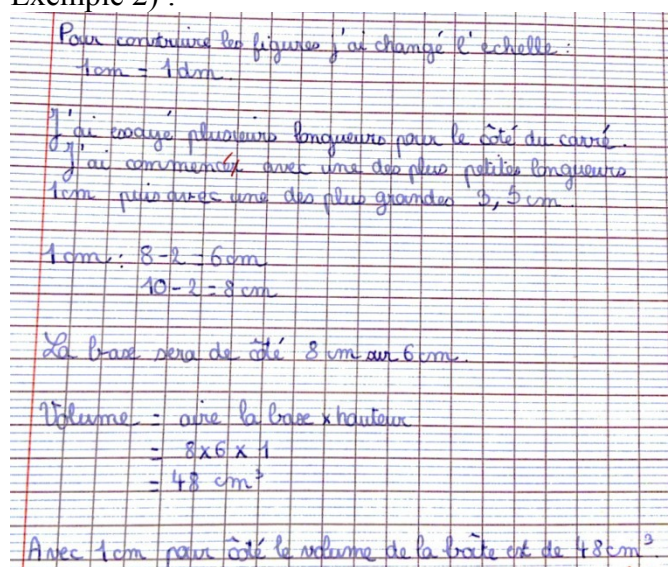 Exemple 2) :
Pour construire les figures j'ai changé l'echelle :
1cm = 1dm.
J'ai essayé plusieurs longueurs pour le côté du carré.
J'ai commencé avec une des plus petites longueurs
1cm puis avec une des plus grandes 3,5 cm
1 cm : 8-2 = 6cm
10-2 = 8 cm
La base sera de côté 8 cm sur 6 cm.
Volume = aire la base x hauteur
= 8x6 x 1
= 48 cm³
Avec 1cm pour côté le volume de la boîte est de 48cm³.